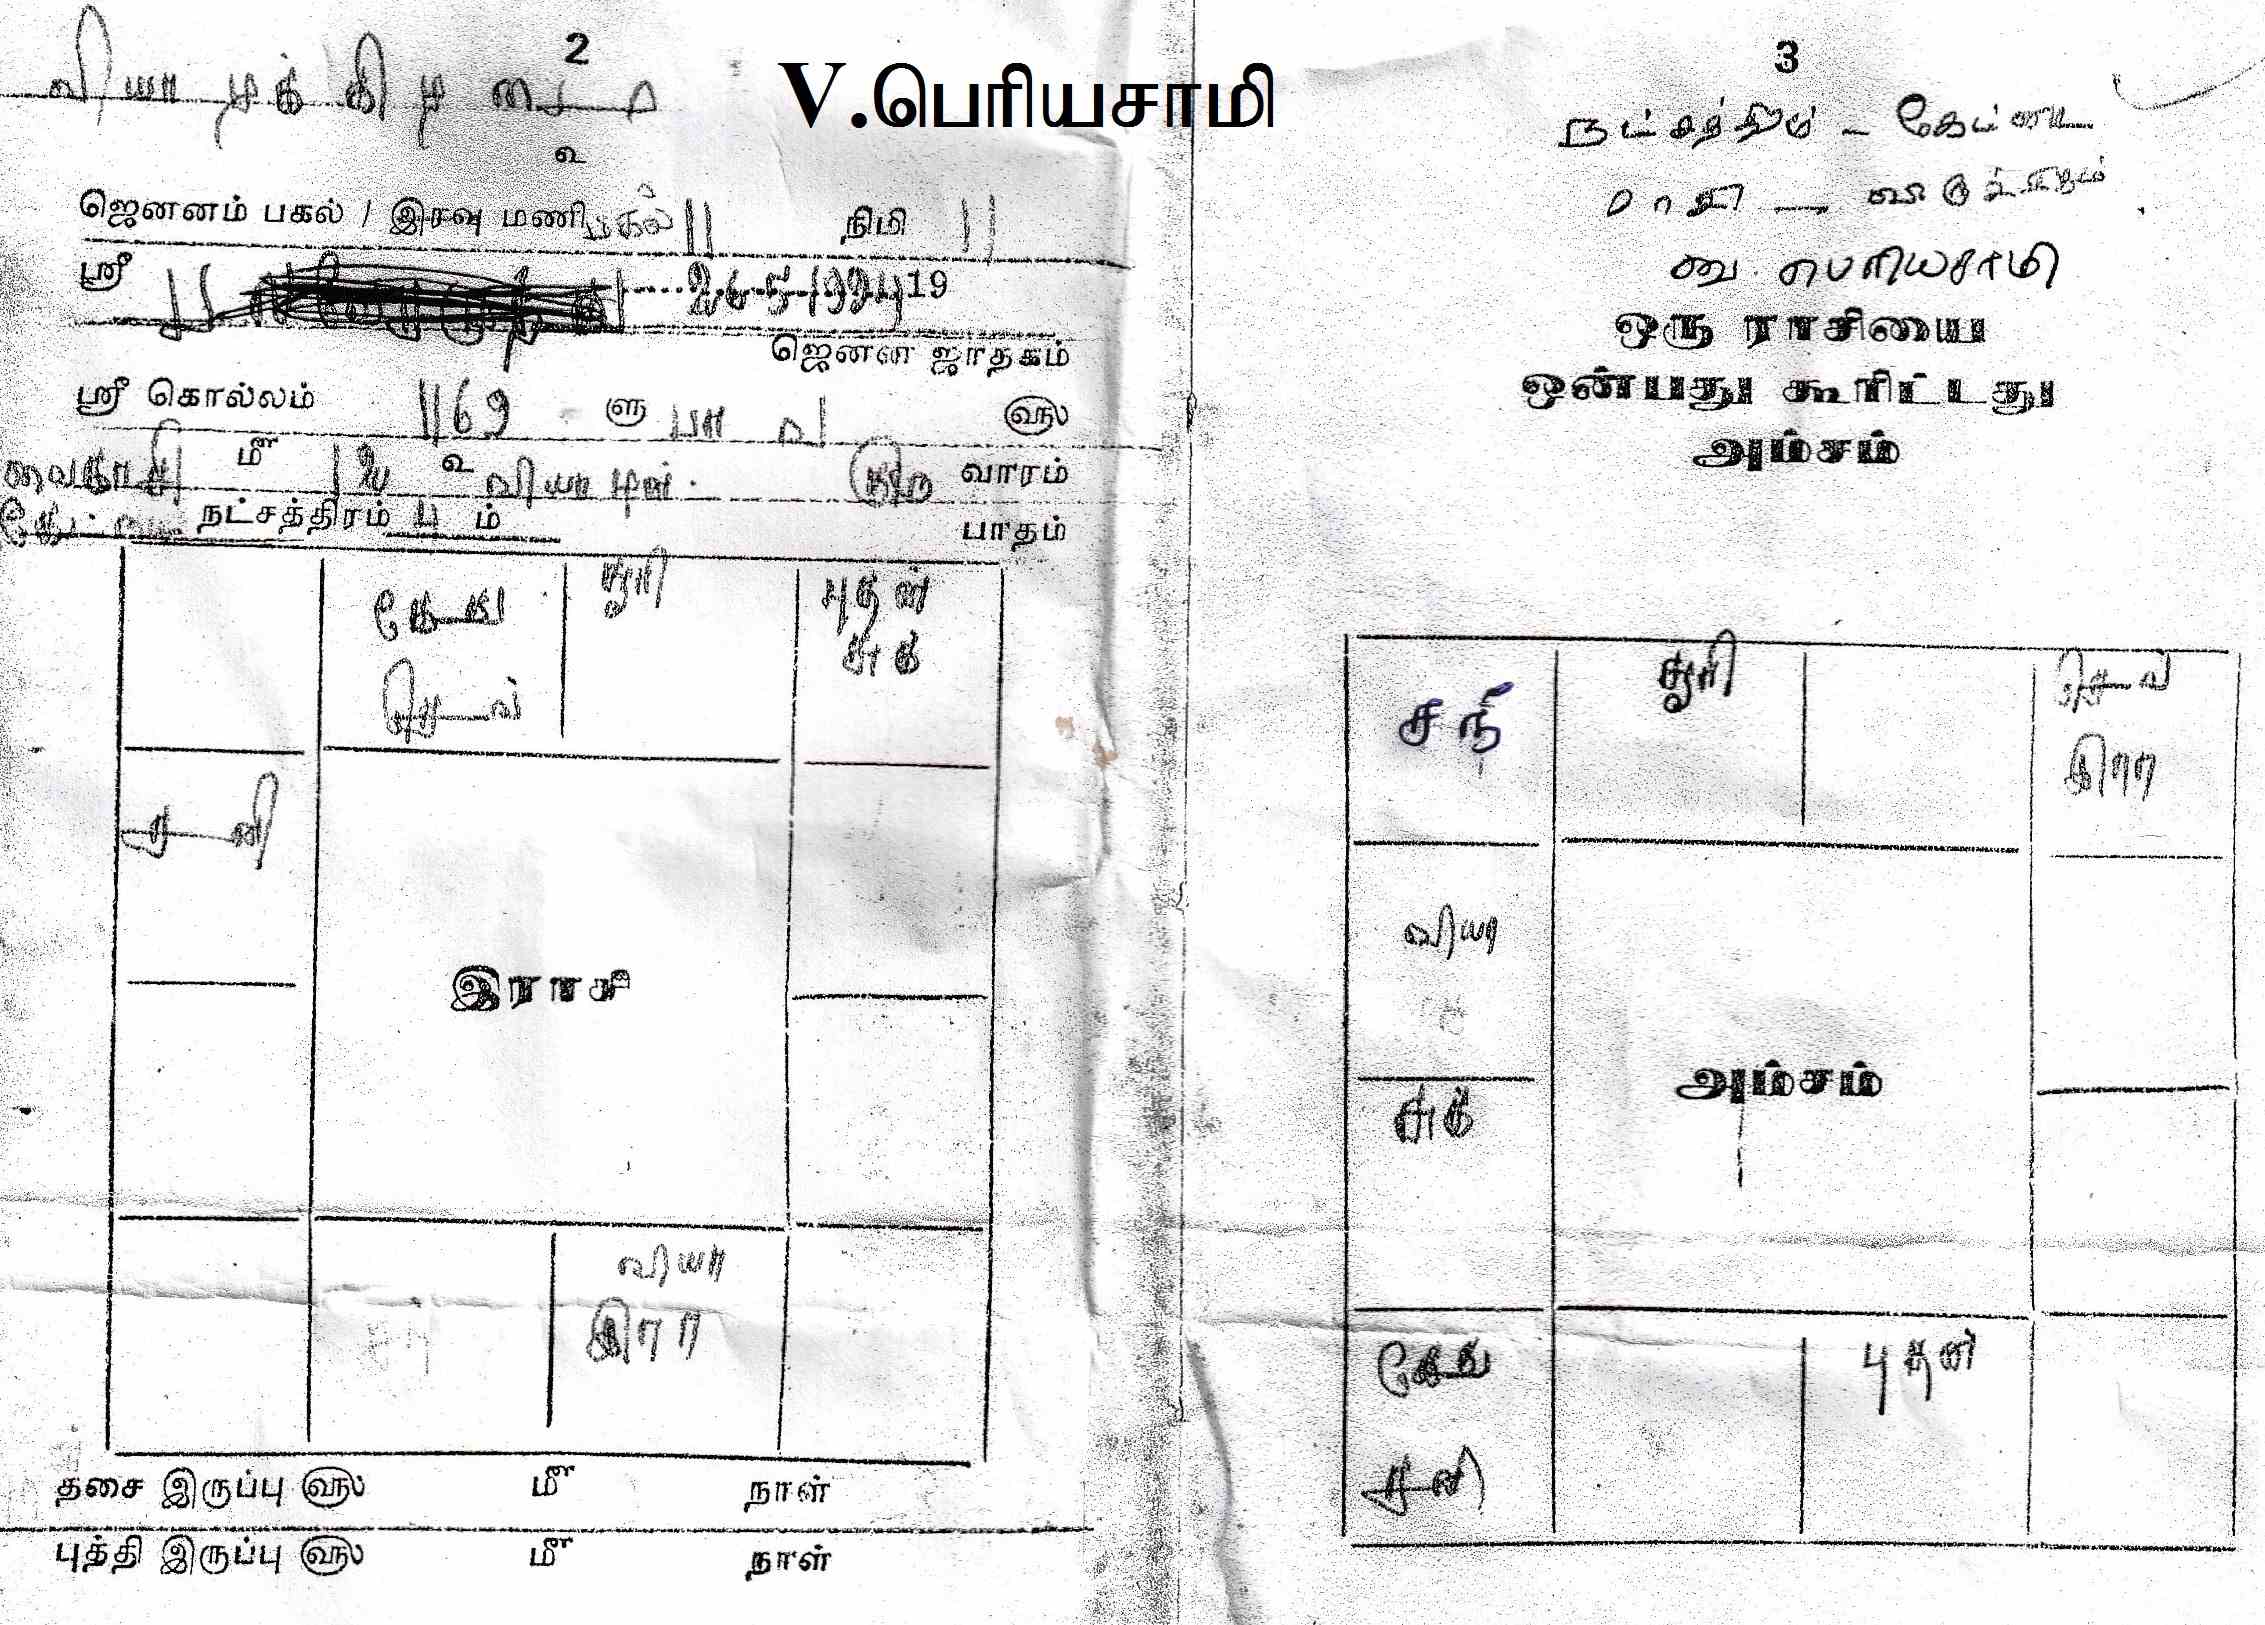 V.பெரியசாமி
2
வியாழக்கிழமை
உ
ஜெனனம் பகல் / இரவு மணி பகல் 11 நிமி 11
ஸ்ரீ 26-5-1994 19
ஜெனன ஜாதகம்
ஸ்ரீ கொல்லம் 1169 ளு பவ ௵
வைகாசி மீ 12 உ வியாழன் வாரம்
கேட்டை நட்சத்திரம் ம் பாதம்
கேது சூரி புதன்
செவ் சுக்
சனி
இராசி
வியா
இரா
தசை இருப்பு ௵ மீ நாள்
புத்தி இருப்பு ௵ மீ நாள்
3
நட்சத்திரம் - கேட்டை
ராசி - விருச்சிகம்
வை. பெரியசாமி
ஒரு ராசியை
ஒன்பது கூரிட்டது
அம்சம்
சந் சூரி செவ்
இரா
வியா
அம்சம்
சுக்
கேது புதன்
சனி